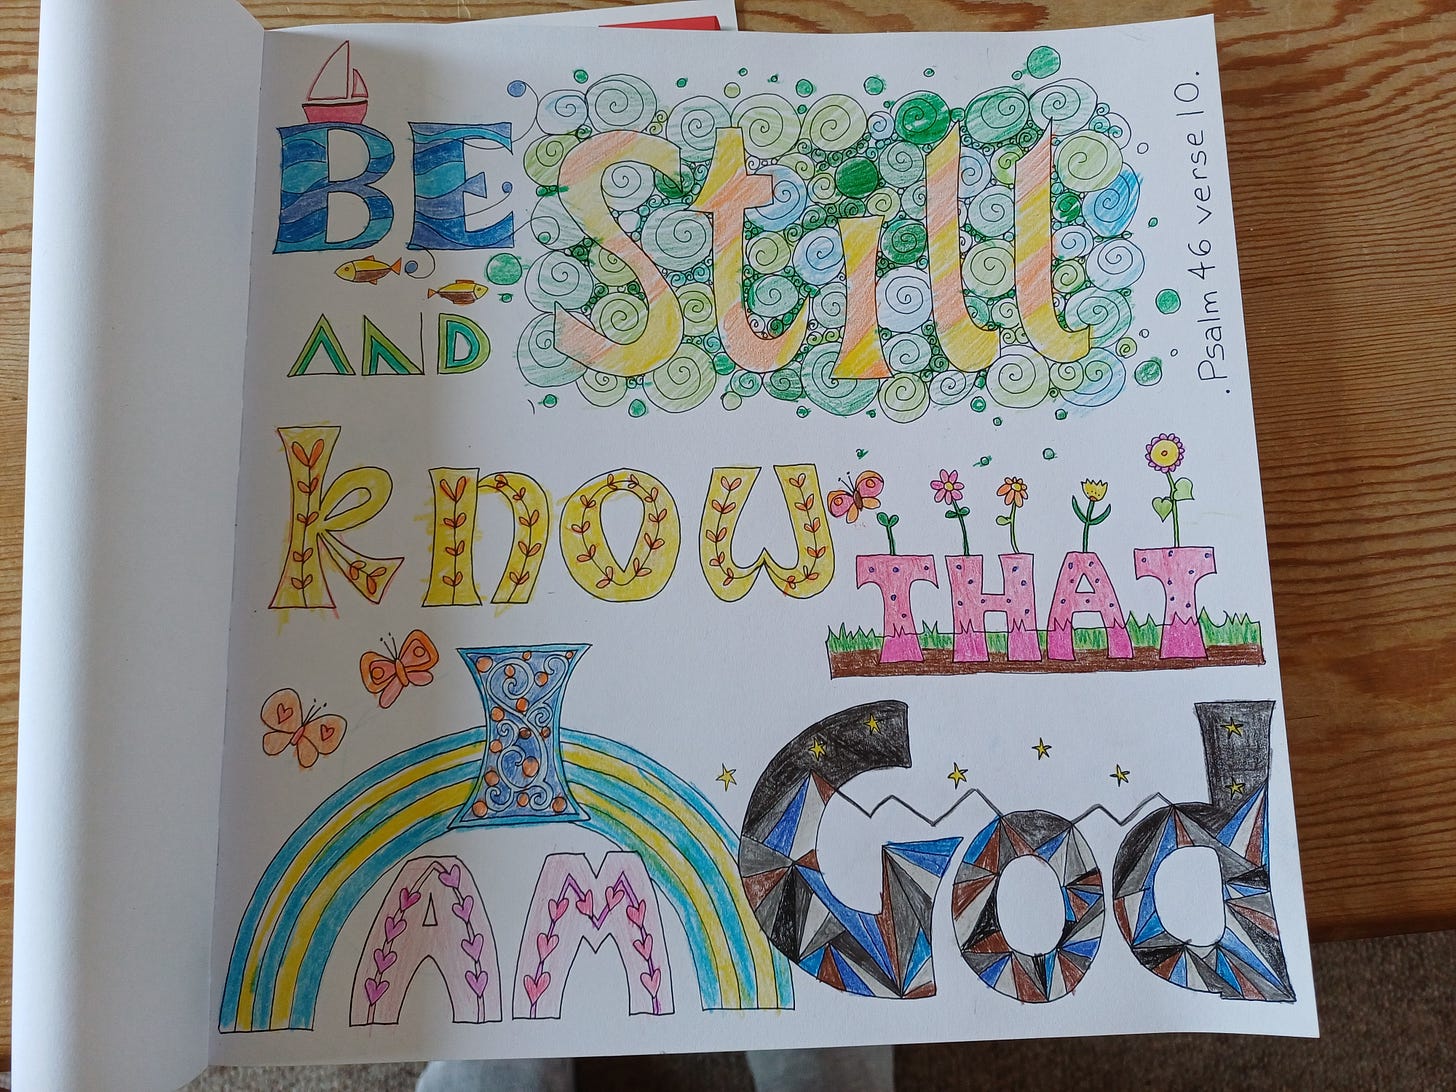 BE Still
AND
know THAT
I
AM God
. Psalm 46 verse 10.